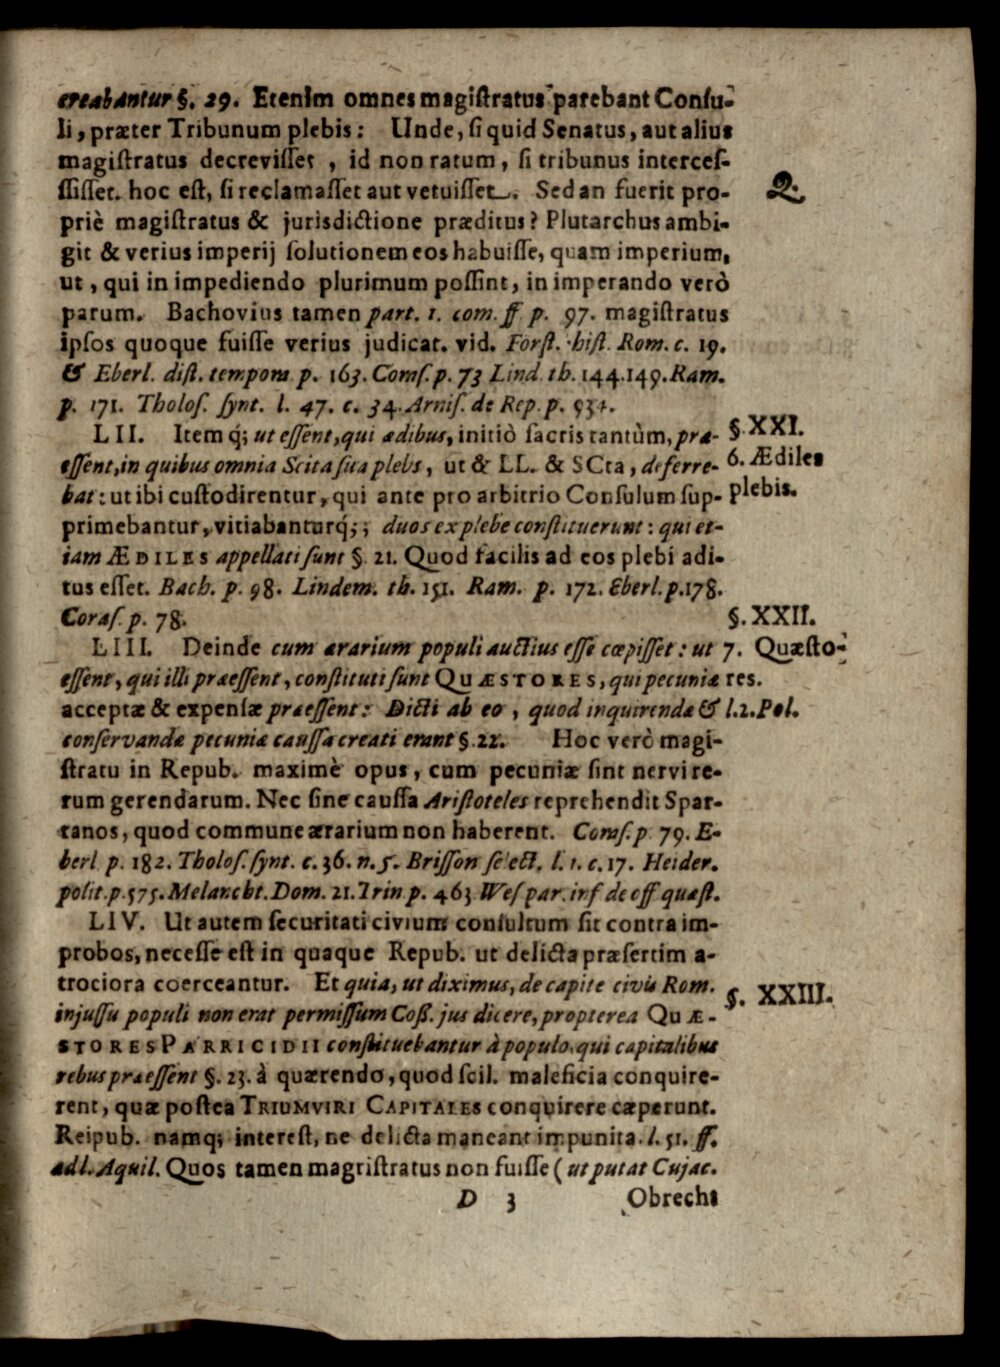 creabantur §. 29. Etenim omnes magiſtratus parebant Conſu-
li, præter Tribunum plebis: Unde, ſi quid Senatus, aut alius
magiſtratus decreviſſet, id non ratum, ſi tribunus interceſ-
ſiſſet. hoc eſt, ſi reclamaſſet aut vetuiſſet. Sed an fuerit pro-
Q.
priè magiſtratus & jurisdictione præditus? Plutarchus ambi-
git & verius imperij ſolutionem eos habuiſſe, quam imperium,
ut, qui in impediendo plurimum poſſint, in imperando verò
parum. Bachovius tamen part. 1. com. ff p. 97. magiſtratus
ipſos quoque fuiſſe verius judicat. vid. Forſt. hiſt. Rom. c. 19.
& Eberl. diſt. tempora p. 163. Coraſ. p. 73 Lind. th. 144. 149. Ram.
p. 171. Tholoſ. ſynt. l. 47. c. 34. Arniſ. de Rep. p.
LII. Item q́; ut eſſent, qui ædibus, initiò ſacris tantùm, præ-
§. XXI.
eſſent, in quibus omnia Scita ſua plebs, ut & LL. & SCta, deferre-
6. Ædiles
bat: ut ibi cuſtodirentur, qui ante pro arbitrio Conſulum ſup-
plebis.
primebantur, vitiabanturq́;; duos ex plebe conſtituerunt: qui et-
iam ÆDILES appellati ſunt §. 21. Quod facilis ad eos plebi adi-
tus eſſet. Bach. p. 98. Lindem. th. 151. Ram. p. 172. Eberl. p. 178.
Coraſ. p. 78.
§. XXII.
LIII. Deinde cum ærarium populi auctius eſſe cœpiſſet: ut
7. Quæſto-
eſſent, qui illi præeſſent, conſtituti ſunt QUÆSTORES, qui pecuniæ
res.
acceptæ & expenſæ præeſſent: Dicti ab eo, quod inquirendæ &
l. 2. Pol.
conſervandæ pecuniæ cauſſa creati erant §. 22. Hoc verò magi-
ſtratu in Repub. maximè opus, cum pecuniæ ſint nervi re-
rum gerendarum. Nec ſine cauſſa Ariſtoteles reprehendit Spar-
tanos, quod commune ærarium non haberent. Coraſ. p. 79. E-
berl p. 182. Tholoſ. ſynt. c. 36. n. 5. Briſſon ſelect. l. 1. c. 17. Heider.
polit. p. 575. Melancht. Dom. 21. Trin p. 463 Weſ par. in ff de off quæſt.
LIV. Ut autem ſecuritati civium conſultum ſit contra im-
probos, neceſſe eſt in quaque Repub. ut delicta præſertim a-
trociora coerceantur. Et quia, ut diximus, de capite civis Rom.
§. XXIII.
injuſſu populi non erat permiſſum Coſſ. jus dicere, propterea QUÆ-
STORES PARRICIDII conſtituebantur à populo, qui capitalibus
rebus præeſſent §. 23. à quærendo, quod ſcil. maleficia conquire-
rent, quæ poſtea TRIUMVIRI CAPITALES conquirere cæperunt.
Reipub. namq; intereſt, ne delicta maneant impunita. l. 51. ff.
ad l. Aquil. Quos tamen magriſtratus non fuiſſe (ut putat Cujac.
D 3 Obrecht